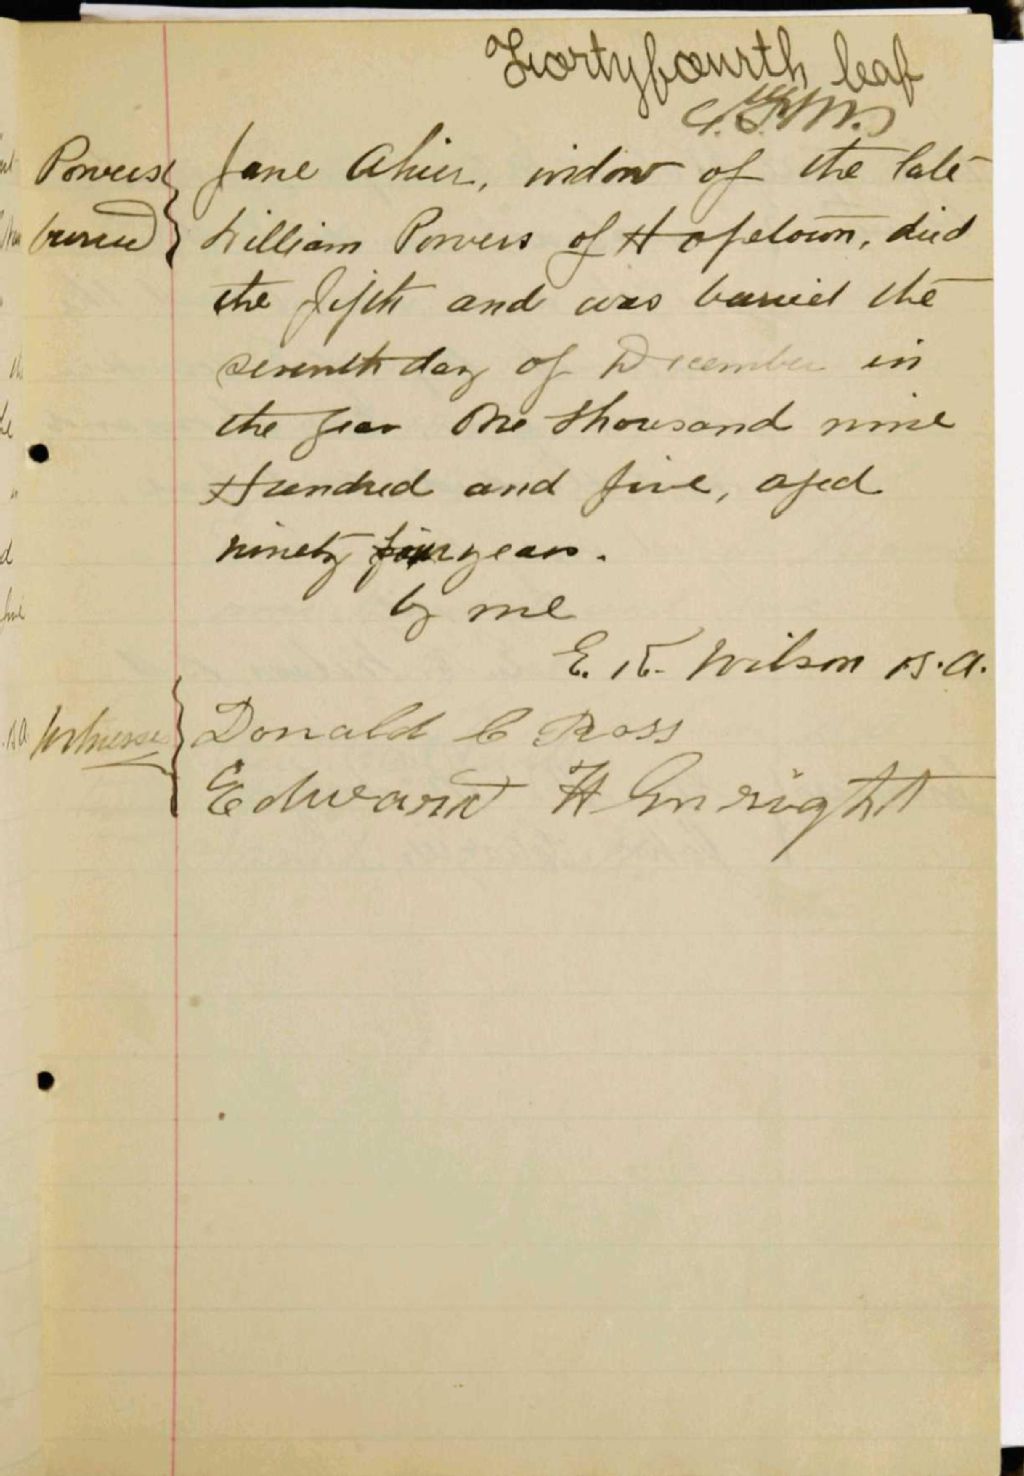 Fortyfourth leaf
Powers Jane Ahier, widow of the late
buried William Powers of Hopetown, died
the fifth and was buried the
seventh day of December in
the year One thousand nine
Hundred and five, aged
ninety years.
by me
E. K. Wilson B.A.
Witnesses Donald C Ross
Edward H Enright